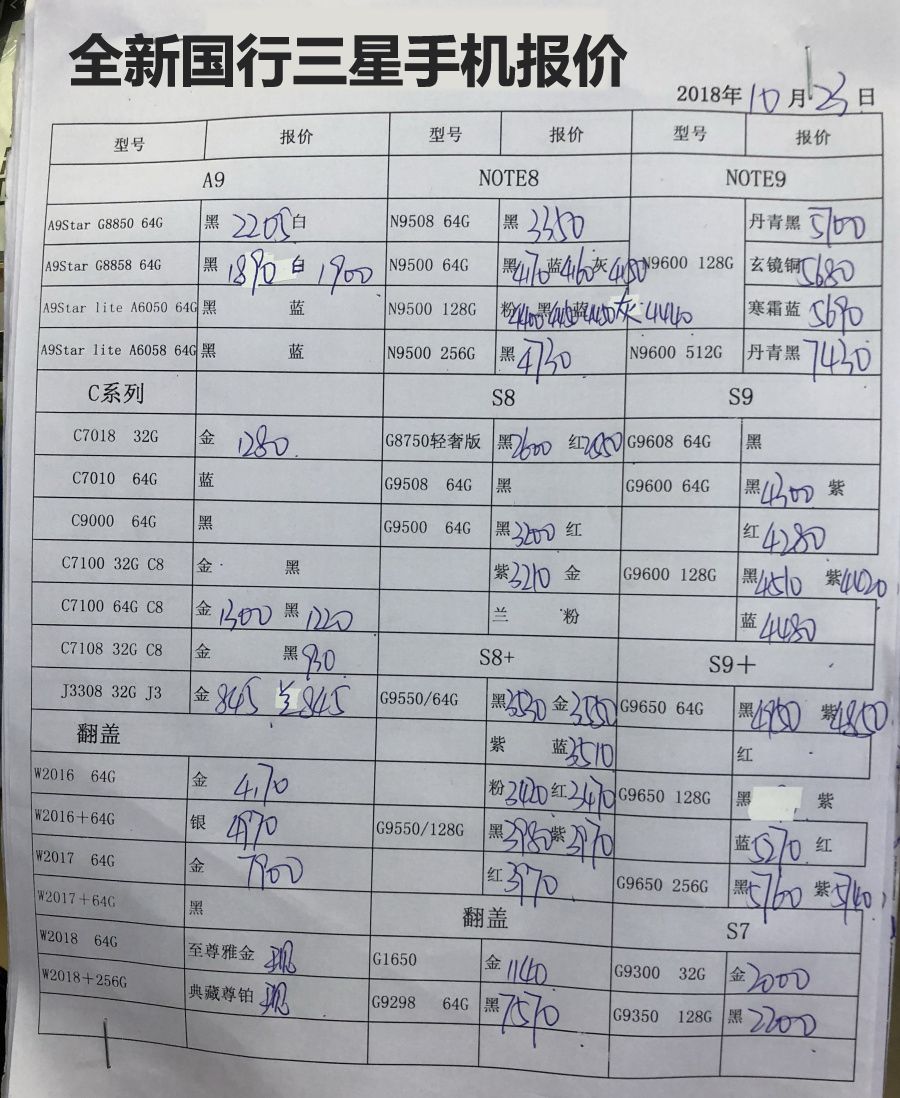 全新国行三星手机报价
2018年10月23日
型号 报价 型号 报价 型号 报价
A9 NOTE8 NOTE9
A9Star G8850 64G 黑 2205 白 N9508 64G 黑 3350 丹青黑 5700
A9Star G8858 64G 黑 1890 白 1900 N9500 64G 黑4170 蓝4160 灰4180 N9600 128G 玄镜铜 5680
A9Star lite A6050 64G 黑 蓝 N9500 128G 粉4400 黑4450 蓝4450 灰4440 寒霜蓝 5690
A9Star lite A6058 64G 黑 蓝 N9500 256G 黑 4730 N9600 512G 丹青黑 7430
C系列 S8 S9
C7018 32G 金 1280 G8750轻奢版 黑2600 红2550 G9608 64G 黑
C7010 64G 蓝 G9508 64G 黑 G9600 64G 黑4300 紫
C9000 64G 黑 G9500 64G 黑3200 红 红4280
C7100 32G C8 金 黑 紫3210 金 G9600 128G 黑4510 紫4420
C7100 64G C8 金 1300 黑 1220 兰 粉 蓝4480
C7108 32G C8 金 黑930 S8+ S9+
J3308 32G J3 金845 兰845 G9550/64G 黑3530 金3550 G9650 64G 黑4950 紫4850
翻盖 紫 蓝3510 红
W2016 64G 金 4170 粉3420 红3470 G9650 128G 黑 紫
W2016+64G 银 4970 G9550/128G 黑3980 紫3970 蓝5270 红
W2017 64G 金 7900 红3970 G9650 256G 黑5760 紫5740
W2017+64G 黑 翻盖 S7
W2018 64G 至尊雅金 现 G1650 金 1140 G9300 32G 金2000
W2018+256G 典藏尊铂 现 G9298 64G 黑7570 G9350 128G 黑2200